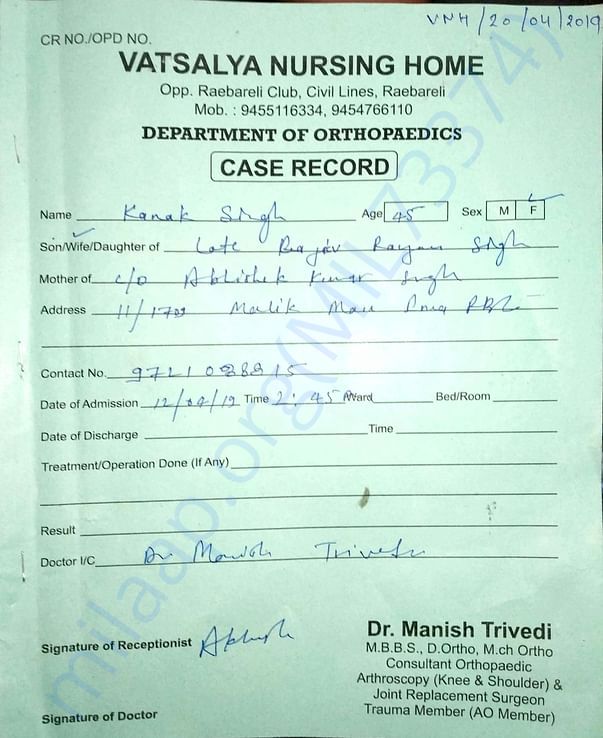 VNH/20/04/2019
CR NO./OPD NO.
VATSALYA NURSING HOME
Opp. Raebareli Club, Civil Lines, Raebareli
Mob. : 9455116334, 9454766110
DEPARTMENT OF ORTHOPAEDICS
CASE RECORD
Name Kanak Singh Age 45 Sex M F
Son/Wife/Daughter of Late Singh
Mother of c/o Abhishek Kumar Singh
Address Malik Mau
Contact No.
Date of Admission 12/04/19 Time 2:45 Ward Bed/Room
Date of Discharge Time
Treatment/Operation Done (If Any)
Result
Doctor I/C Dr Manish Trivedi
Signature of Receptionist
Dr. Manish Trivedi
M.B.B.S., D.Ortho, M.ch Ortho
Consultant Orthopaedic
Arthroscopy (Knee & Shoulder) &
Joint Replacement Surgeon
Trauma Member (AO Member)
Signature of Doctor
milaap.org(MIL73374)